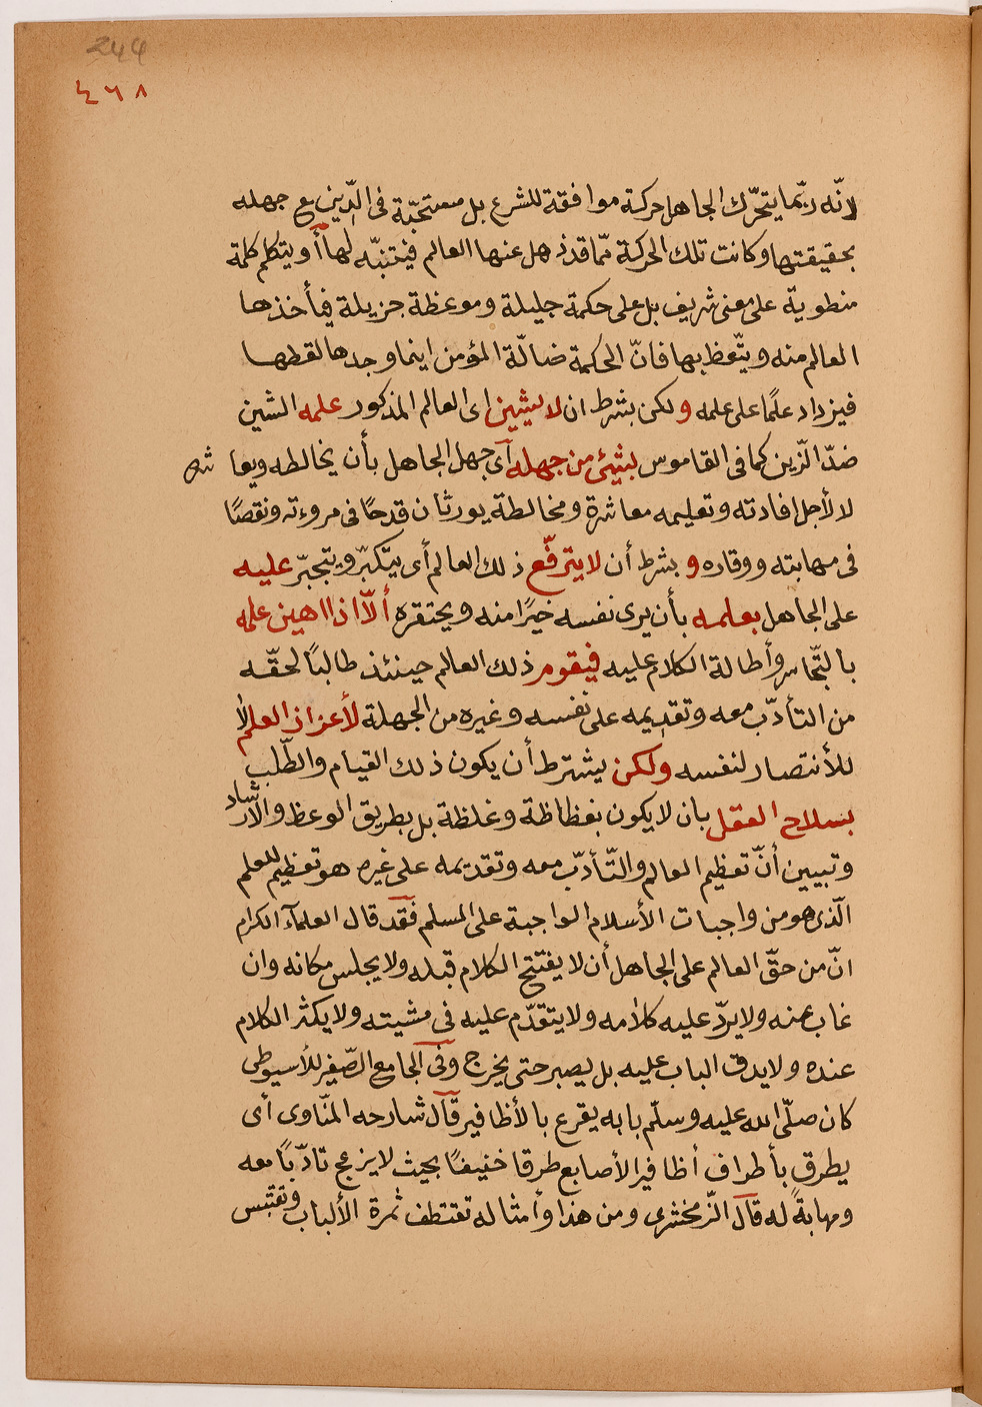 244
٤٦٨
لانّه ربّما يتحرّك الجاهل حركة موافقة للشرع بل مستحبّة فى الدّين مع جهله
بحقيقتها وكانت تلك الحركة ممّا قد ذهل عنها العالم فيتنبّه لها أو يتكلم كلمة
منطوية على معنى شريف بل على حكمة جليلة وموعظة جزيلة فيأخذها
العالم منه ويتّعظ بها فانّ الحكمة ضالّة المؤمن اينما وجدها لقطها
فيزداد علمًا على علمه ولكن بشرط ان لا يشين اى العالم المذكور علمه الشين
ضدّ الزّين كما فى القاموس بشيئ من جهله أى جهل الجاهل بأن يخالطه ويعاشره
لا لأجل افادته وتعليمه معاشرة ومخالطة يورثان قدحًا فى مروءته ونقصًا
فى مهابته ووقاره و بشرط أن لا يترفّع ذلك العالم أى يتكبّر ويتجبّر عليه
على الجاهل بعلمه بأن يرى نفسه خيرًا منه ويحتقره ألاّ اذا اهين علمه
بالتّجاسر وأطالة الكلام عليه فيقوم ذلك العالم حينئذ طالبًا لحقّه
من التأدّب معه وتقديمه على نفسه وغيره من الجهلة لأعزاز العلم لا
للأنتصار لنفسه ولكن يشترط أن يكون ذلك القيام والطّلب
بسلاح العقل بان لا يكون بفظاظة وغلظة بل بطريق الوعظ والارشاد
وتبيين أنّ تعظيم العالم والتّأدّب معه وتقديمه على غيره هو تعظيم للعلم
الّذى هو من واجبات الأسلام الواجبة على المسلم فقد قال العلمآء الكرام
انّ من حقّ العالم على الجاهل أن لا يفتتح الكلام قبله ولا يجلس مكانه وان
غاب عنه ولا يردّ عليه كلامه ولا يتقدّم عليه فى مشيته ولا يكثر الكلام
عنده ولا يدق الباب عليه بل يصبر حتى يخرج وفى الجامع الصّغير للأسيوطى
كان صلّى الله عليه وسلّم بابه يقرع بالأظافير قال شارحه المنّاوى أى
يطرق بأطراف أظافير الأصابع طرقا خفيفًا بحيث لا يزعج تادّبًا معه
ومهابةً له قال الزّمخشرى ومن هذا وأمثاله تقتطف ثمرة الألباب وتقتبس